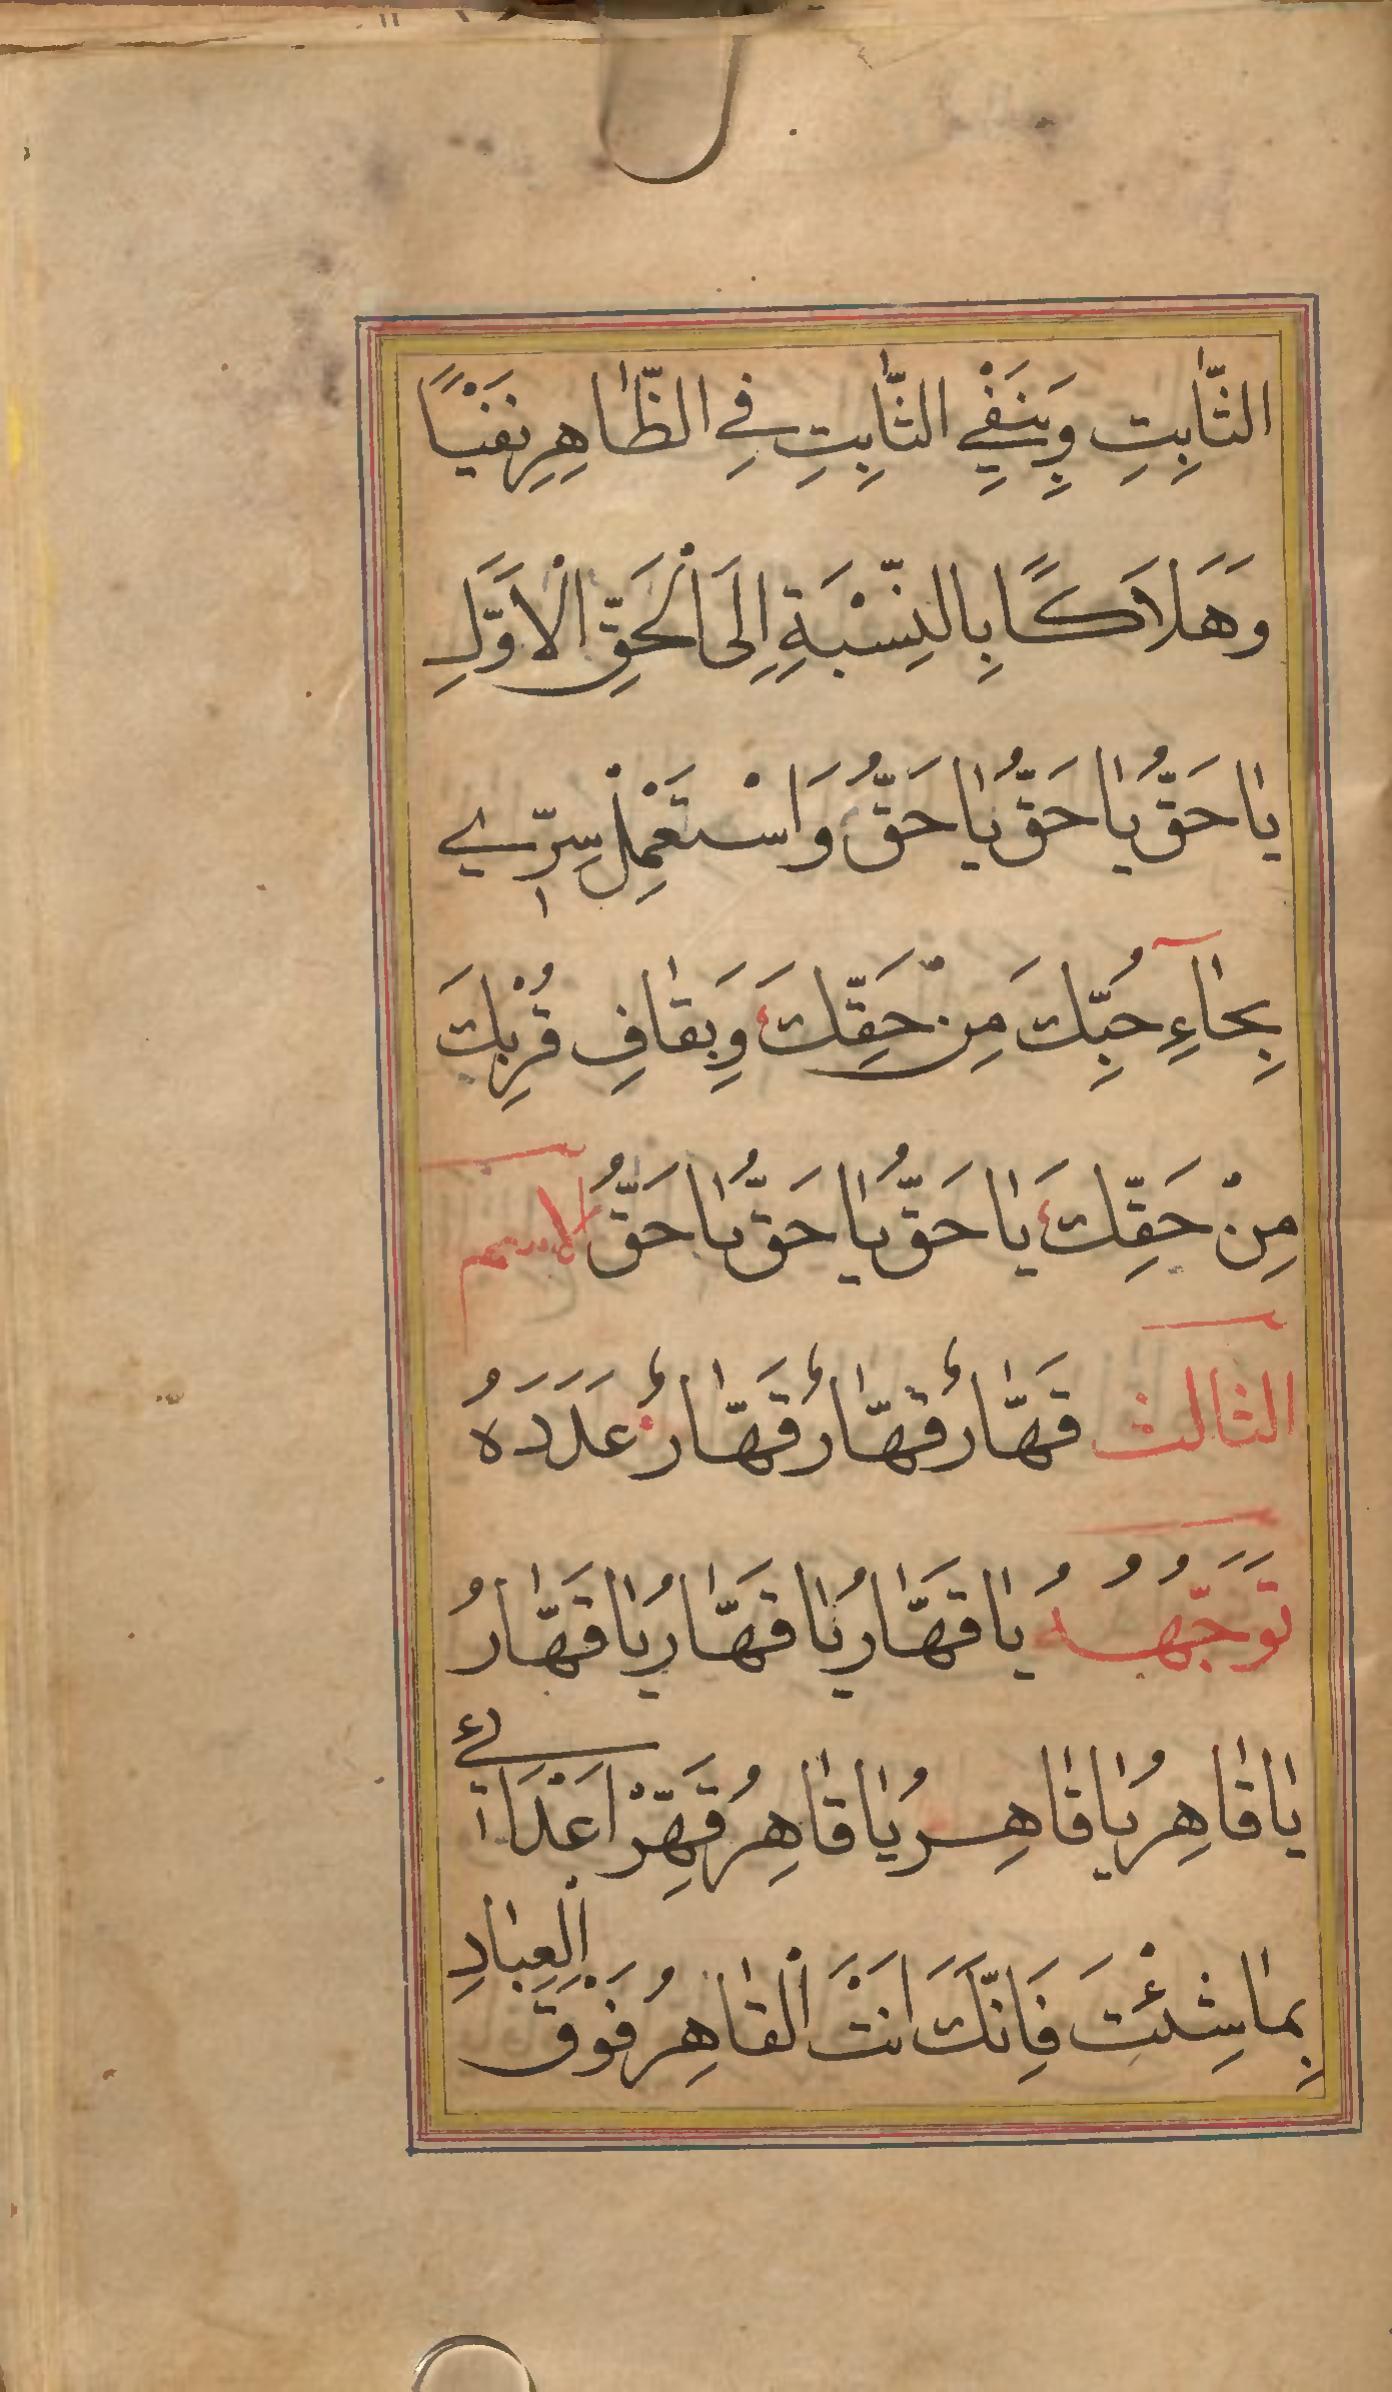 الثَّابِتِ وَبِنَفْيِ الثَّابِتِ فِي الظَّاهِرِ نَفْيًا
وَهَلَاكًا بِالنِّسْبَةِ اِلَى الْحَقِّ الْاَوَّلِ
يَا حَقُّ يَا حَقُّ يَا حَقُّ وَاسْتَعْمِلْ سِرِّي
بِحَآءِ حُبِّكَ مِنْ حَقِّكَ وَبِقَافِ قُرْبِكَ
مِنْ حَقِّكَ يَا حَقُّ يَا حَقُّ يَا حَقُّ الاسم
الثالث قَهَّارٌ قَهَّارٌ قَهَّارٌ عَدَدَهُ
تَوَجُّهُهُ يَا قَهَّارُ يَا قَهَّارُ يَا قَهَّارُ
يَا قَاهِرُ يَا قَاهِرُ يَا قَاهِرُ قَهِّرْ اَعْدَائِي
بِمَا شِئْتَ فَاِنَّكَ اَنْتَ الْقَاهِرُ فَوْقَ الْعِبَادِ